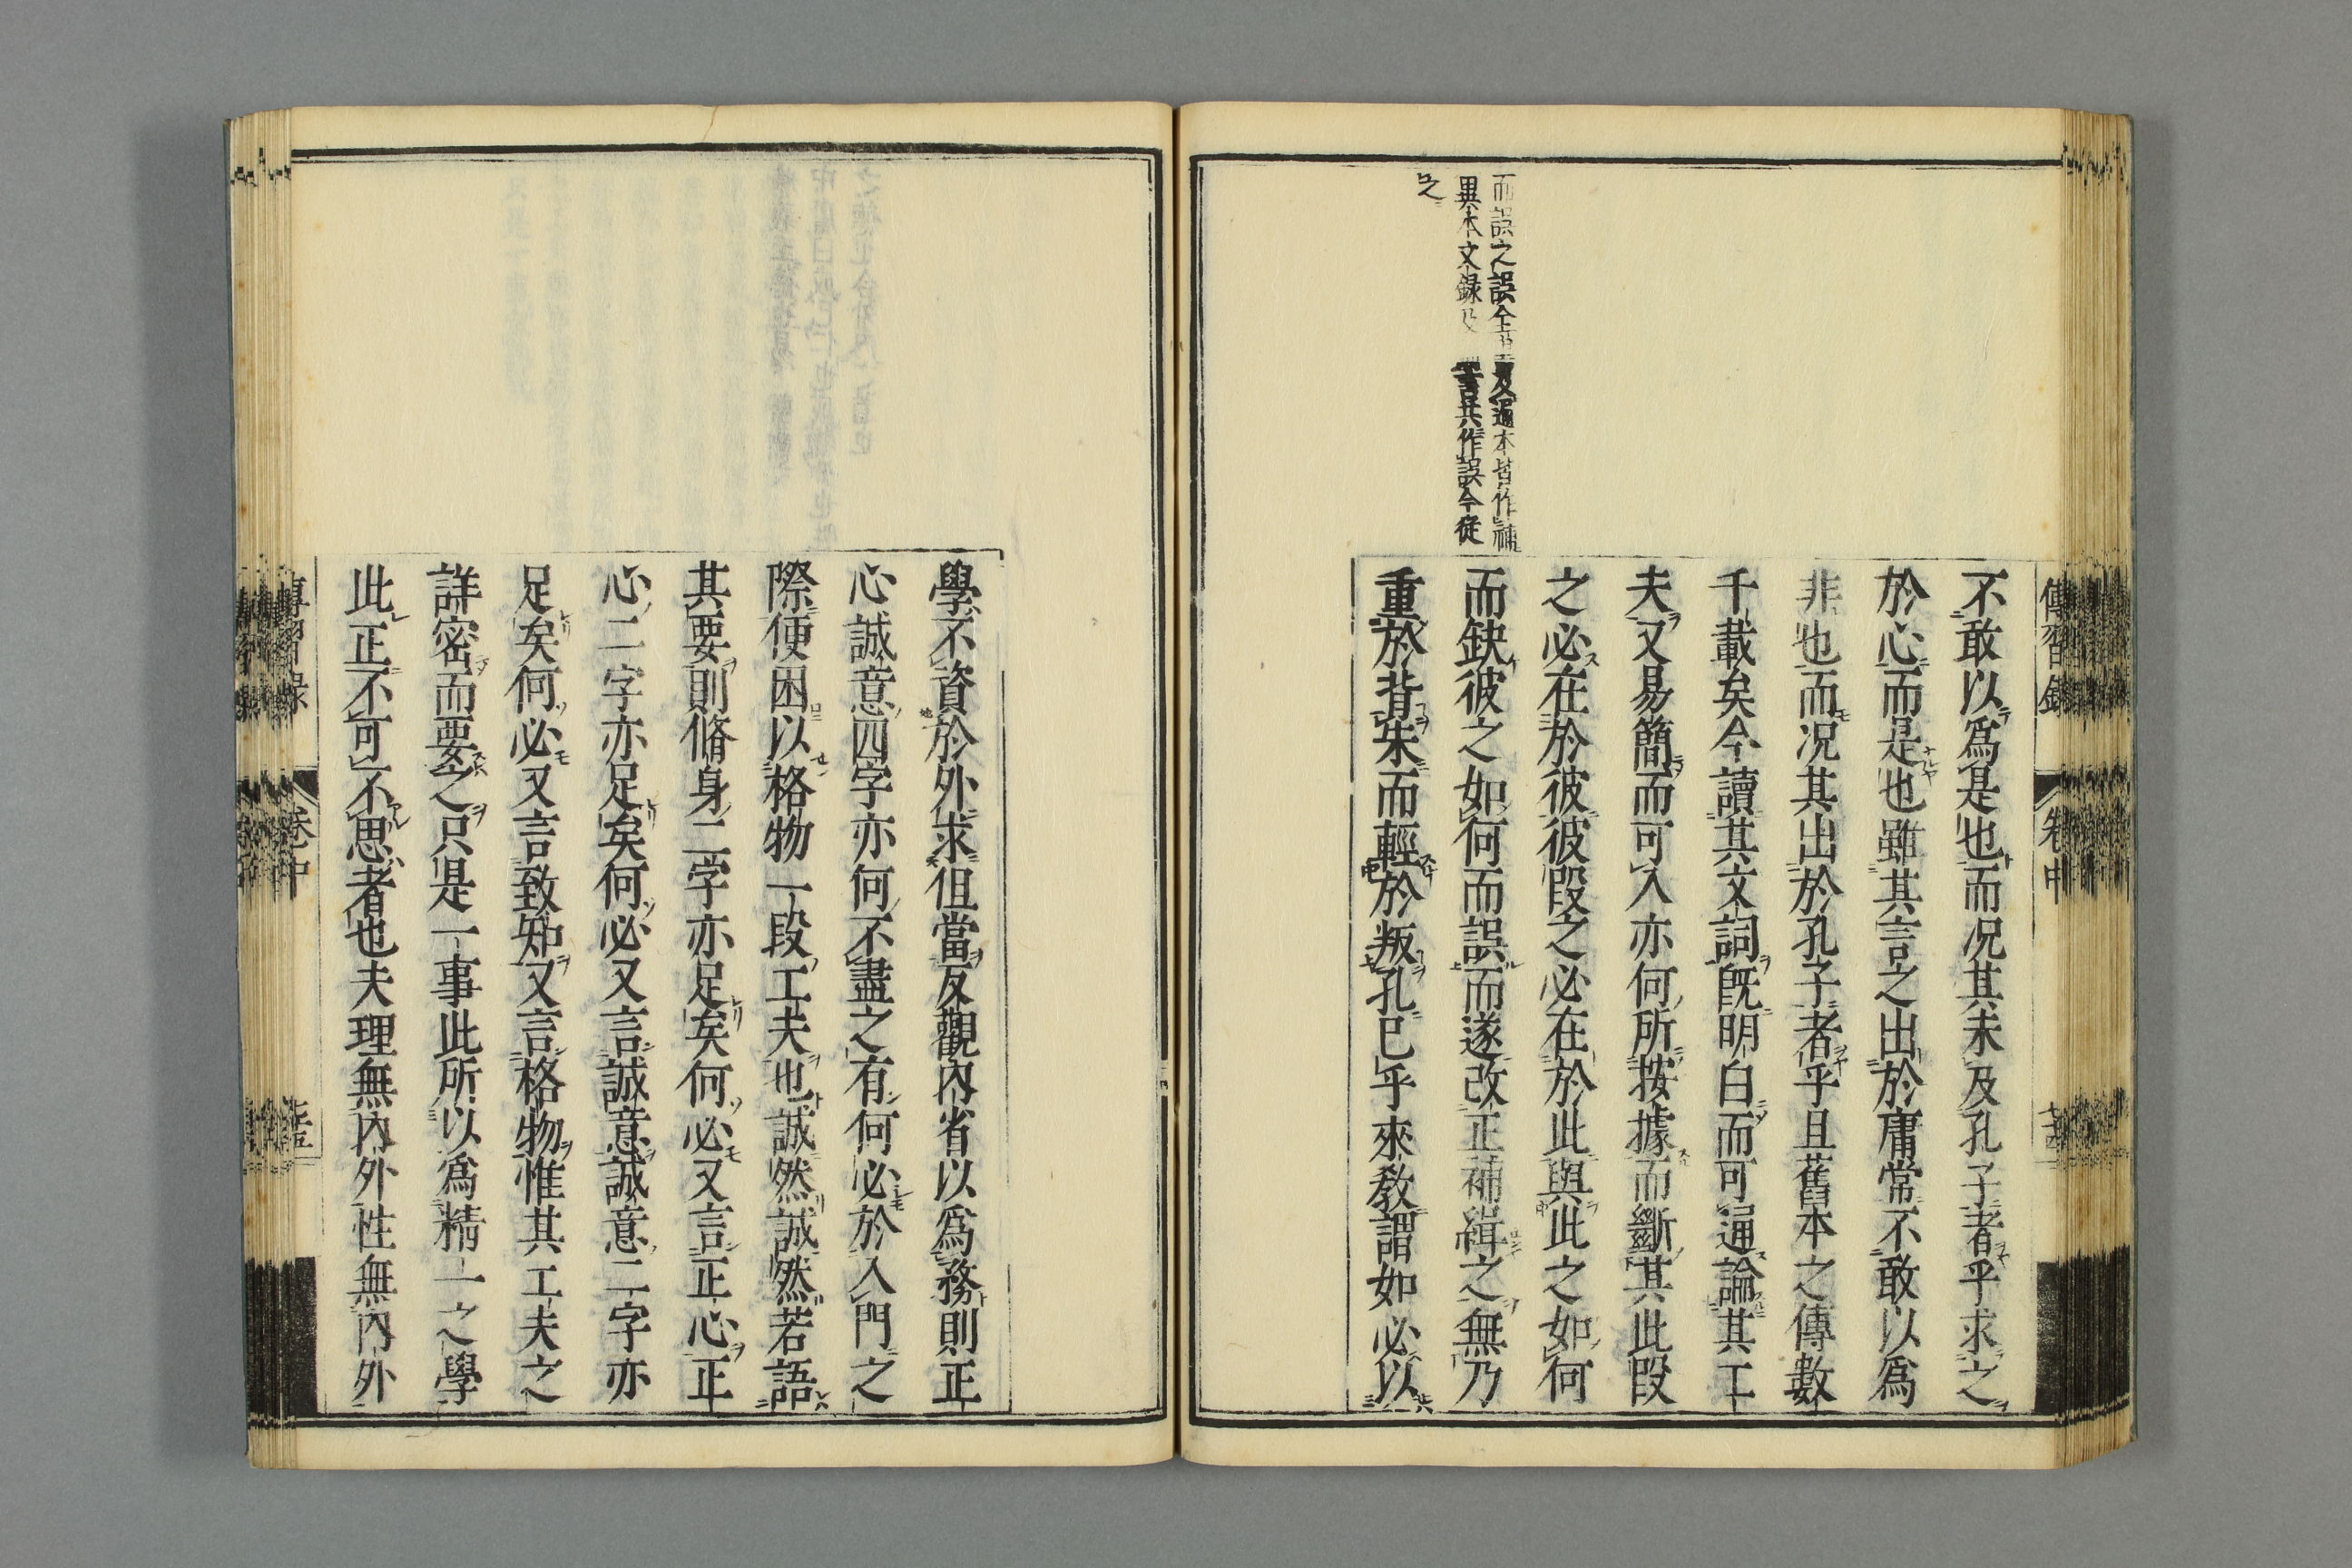 傳習錄
卷中
而誤之誤全書及通本皆作補
異本文錄及
書共作誤今從
之
不敢以爲是也而况其未及孔子者乎求之
於心而是也雖其言之出於庸常不敢以爲
非也而况其出於孔子者乎且舊本之傳數
千載矣今讀其文詞旣明白而可通論其工
夫又易簡而可入亦何所按據而斷其此段
之必在於彼彼段之必在於此與此之如何
而缺彼之如何而誤而遂改正補緝之無乃
重於背朱而輕於叛孔已乎來敎謂如必以
學不資於外求但當反觀內省以爲務則正
心誠意四字亦何不盡之有何必於入門之
際便困以格物一段工夫也誠然誠然若語
其要則脩身二字亦足矣何必又言正心正
心二字亦足矣何必又言誠意誠意二字亦
足矣何必又言致知又言格物惟其工夫之
詳密而要之只是一事此所以爲精一之學
此正不可不思者也夫理無內外性無內外
傳習錄
卷中